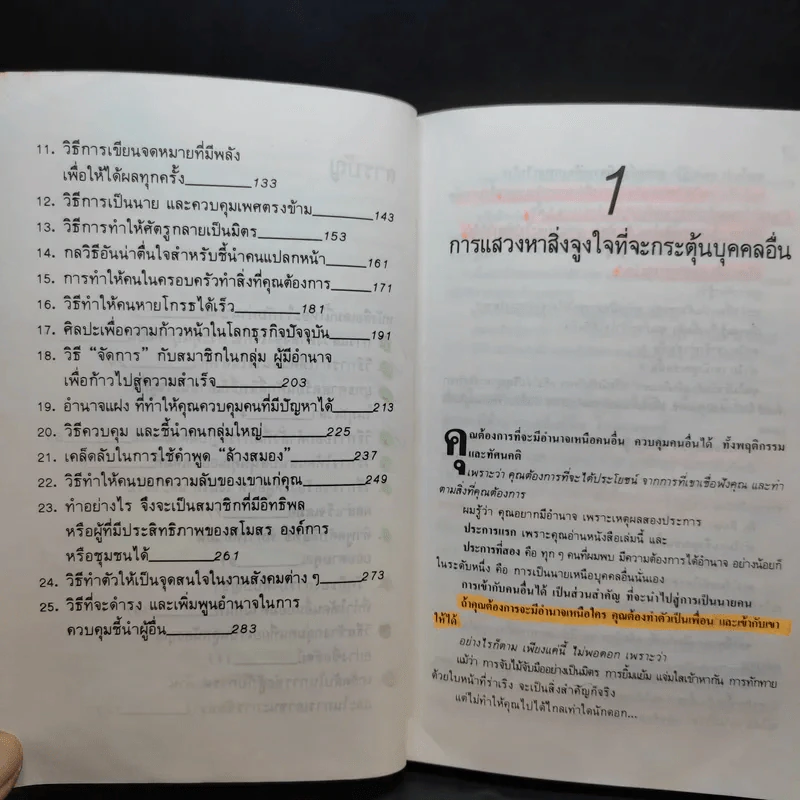 11. วิธีการเขียนจดหมายที่มีพลัง
เพื่อให้ได้ผลทุกครั้ง________133
12. วิธีการเป็นนาย และควบคุมเพศตรงข้าม________143
13. วิธีการทำให้ศัตรูกลายเป็นมิตร________153
14. กลวิธีอันน่าตื่นใจสำหรับชี้นำคนแปลกหน้า________161
15. การทำให้คนในครอบครัวทำสิ่งที่คุณต้องการ________171
16. วิธีทำให้คนหายโกรธได้เร็ว________181
17. ศิลปะเพื่อความก้าวหน้าในโลกธุรกิจปัจจุบัน________191
18. วิธี “จัดการ” กับสมาชิกในกลุ่ม ผู้มีอำนาจ
เพื่อก้าวไปสู่ความสำเร็จ________203
19. อำนาจแฝง ที่ทำให้คุณควบคุมคนที่มีปัญหาได้________213
20. วิธีควบคุม และชี้นำคนกลุ่มใหญ่________225
21. เคล็ดลับในการใช้คำพูด “ล้างสมอง”________237
22. วิธีทำให้คนบอกความลับของเขาแก่คุณ________249
23. ทำอย่างไร จึงจะเป็นสมาชิกที่มีอิทธิพล
หรือผู้ที่มีประสิทธิภาพของสโมสร องค์การ
หรือชุมชนได้________261
24. วิธีทำตัวให้เป็นจุดสนใจในงานสังคมต่าง ๆ________273
25. วิธีที่จะดำรง และเพิ่มพูนอำนาจในการ
ควบคุมชี้นำผู้อื่น________283
1
การแสวงหาสิ่งจูงใจที่จะกระตุ้นบุคคลอื่น
คุณต้องการที่จะมีอำนาจเหนือคนอื่น ควบคุมคนอื่นได้ ทั้งพฤติกรรม
และทัศนคติ
เพราะว่า คุณต้องการที่จะได้ประโยชน์ จากการที่เขาเชื่อฟังคุณ และทำ
ตามสิ่งที่คุณต้องการ
ผมรู้ว่า คุณอยากมีอำนาจ เพราะเหตุผลสองประการ
ประการแรก เพราะคุณอ่านหนังสือเล่มนี้ และ
ประการที่สอง คือ ทุก ๆ คนที่ผมพบ มีความต้องการได้อำนาจ อย่างน้อยก็
ในระดับหนึ่ง คือ การเป็นนายเหนือบุคคลอื่นนั่นเอง
การเข้ากับคนอื่นได้ เป็นส่วนสำคัญ ที่จะนำไปสู่การเป็นนายคน
ถ้าคุณต้องการจะมีอำนาจเหนือใคร คุณต้องทำตัวเป็นเพื่อน และเข้ากับเขา
ให้ได้
อย่างไรก็ตาม เพียงแค่นี้ ไม่พอดอก เพราะว่า
แม้ว่า การจับไม้จับมืออย่างเป็นมิตร การยิ้มแย้ม แจ่มใสเข้าหากัน การทักทาย
ด้วยใบหน้าที่ร่าเริง จะเป็นสิ่งสำคัญก็จริง
แต่ไม่ทำให้คุณไปได้ไกลเท่าใดนักดอก...